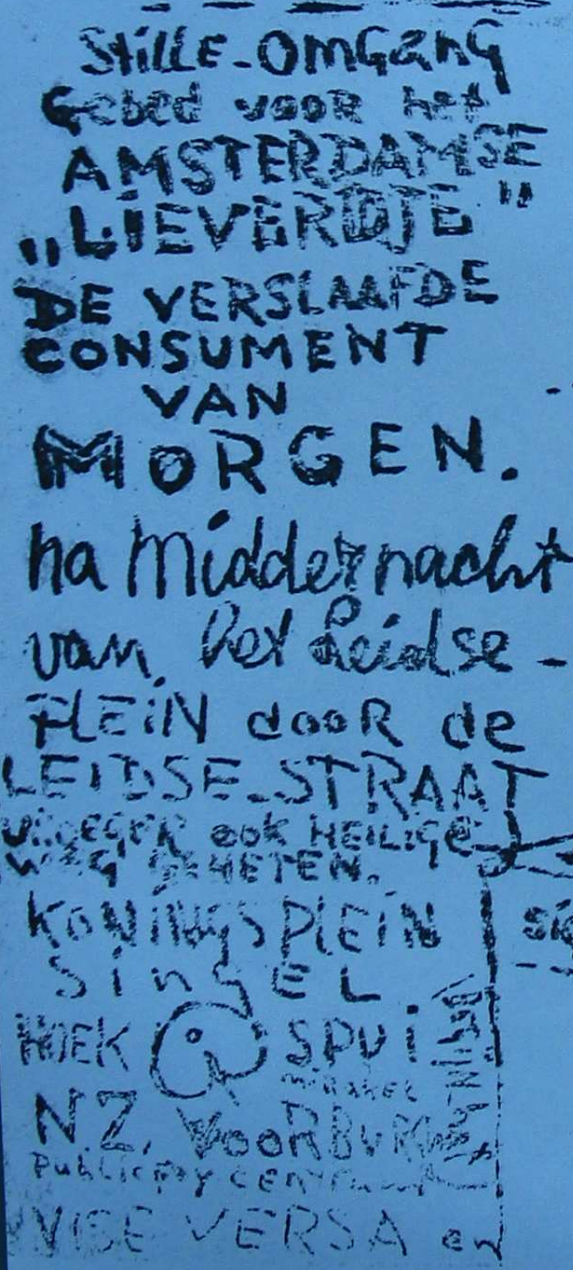 Stille-Omgang
Gebed voor het
AMSTERDAMSE
„LiEVERDJE"
DE VERSLAAFDE
CONSUMENT
VAN
MORGEN.
na Middernacht
van het Leidse-
PLEiN dooR de
LEIDSE-STRAAT
VROEGER ook HEILIGE
WEG GEHETEN.
KONINGSPLEiN
SinGEL
HOEK SPUi
MiRAKEL
NZ. VOORBURG
PUBLICITY CENTRUM
VISE VERSA en